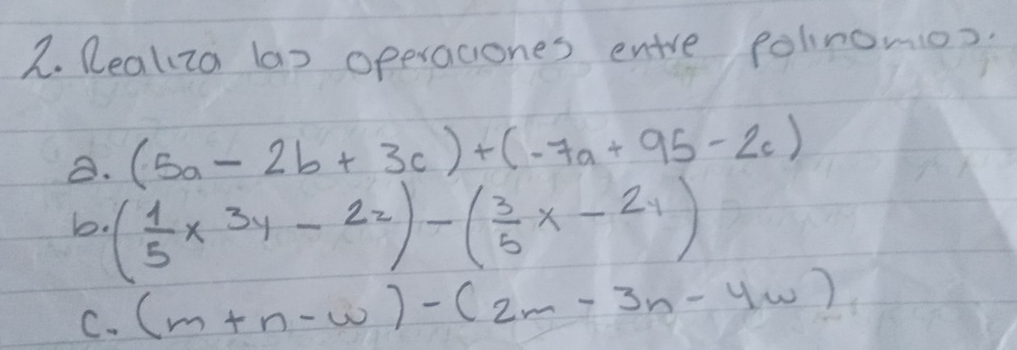 2. Realiza las operaciones entre polinomios.
a. (5a - 2b + 3c) + (-7a + 95 - 2c)
b. (1/5 x 3y - 2z) - (3/5 x - 2y)
c. (m + n - w) - (2m - 3n - 4w)